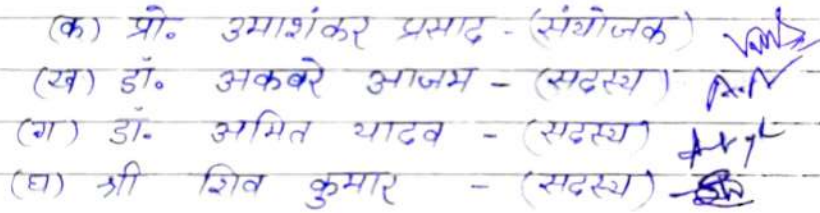 (क) प्रो० उमाशंकर प्रसाद - (संयोजक)
(ख) डॉ० अकबरे आजम - (सदस्य)
(ग) डॉ० अमित यादव - (सदस्य)
(घ) श्री शिव कुमार - (सदस्य)